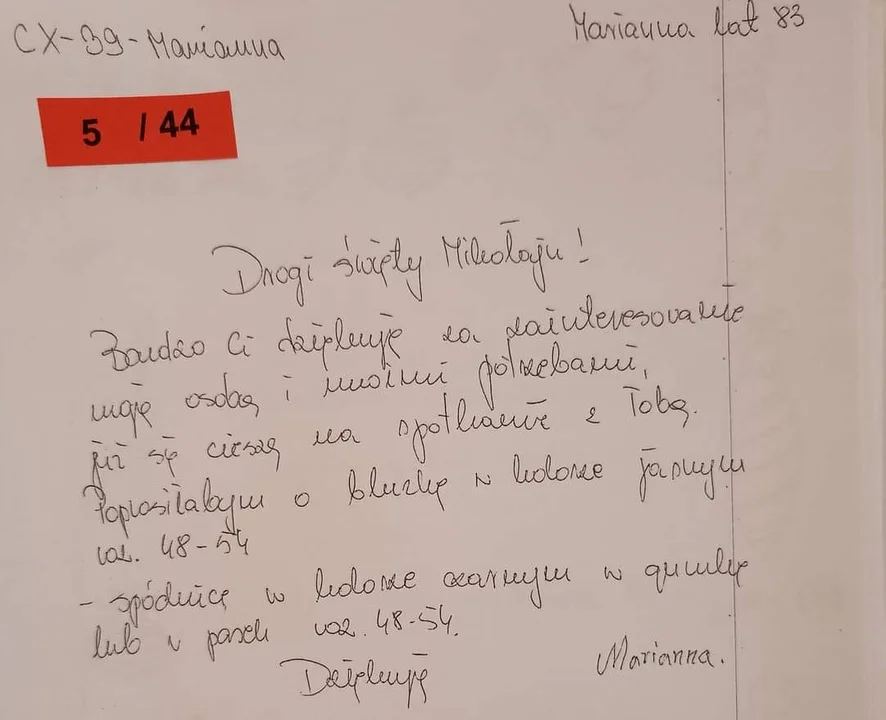 CX-39-Marianna
Marianna lat 83
5 / 44
Drogi święty Mikołaju!
Bardzo Ci dziękuję za zainteresowanie
moją osobą i moimi potrzebami,
już się cieszę na spotkanie z Tobą.
Poprosiłabym o bluzkę w kolorze jasnym
roz. 48-54
- spódnicę w kolorze czarnym w gumkę
lub w pasek roz. 48-54.
Dziękuję
Marianna.